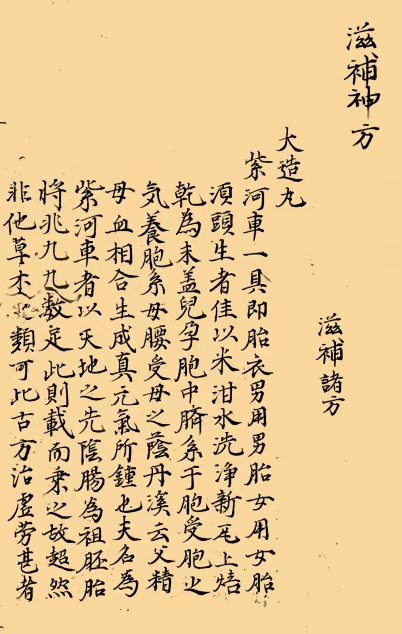 滋補神方
滋補諸方
大造丸
紫河車一具即胎衣男用男胎女用女胎
須頭生者佳以米泔水洗净新瓦上焙
乾為末盖兒孕胞中臍系于胞受胞之
気養胞系母腰受母之蔭丹溪云父精
母血相合生成真元氣所鍾也夫名為
紫河車者以天地之先陰腸為祖胚胎
将兆九九数足此則載而乗之故超然
非他草木之類可比古方治虚劳甚者